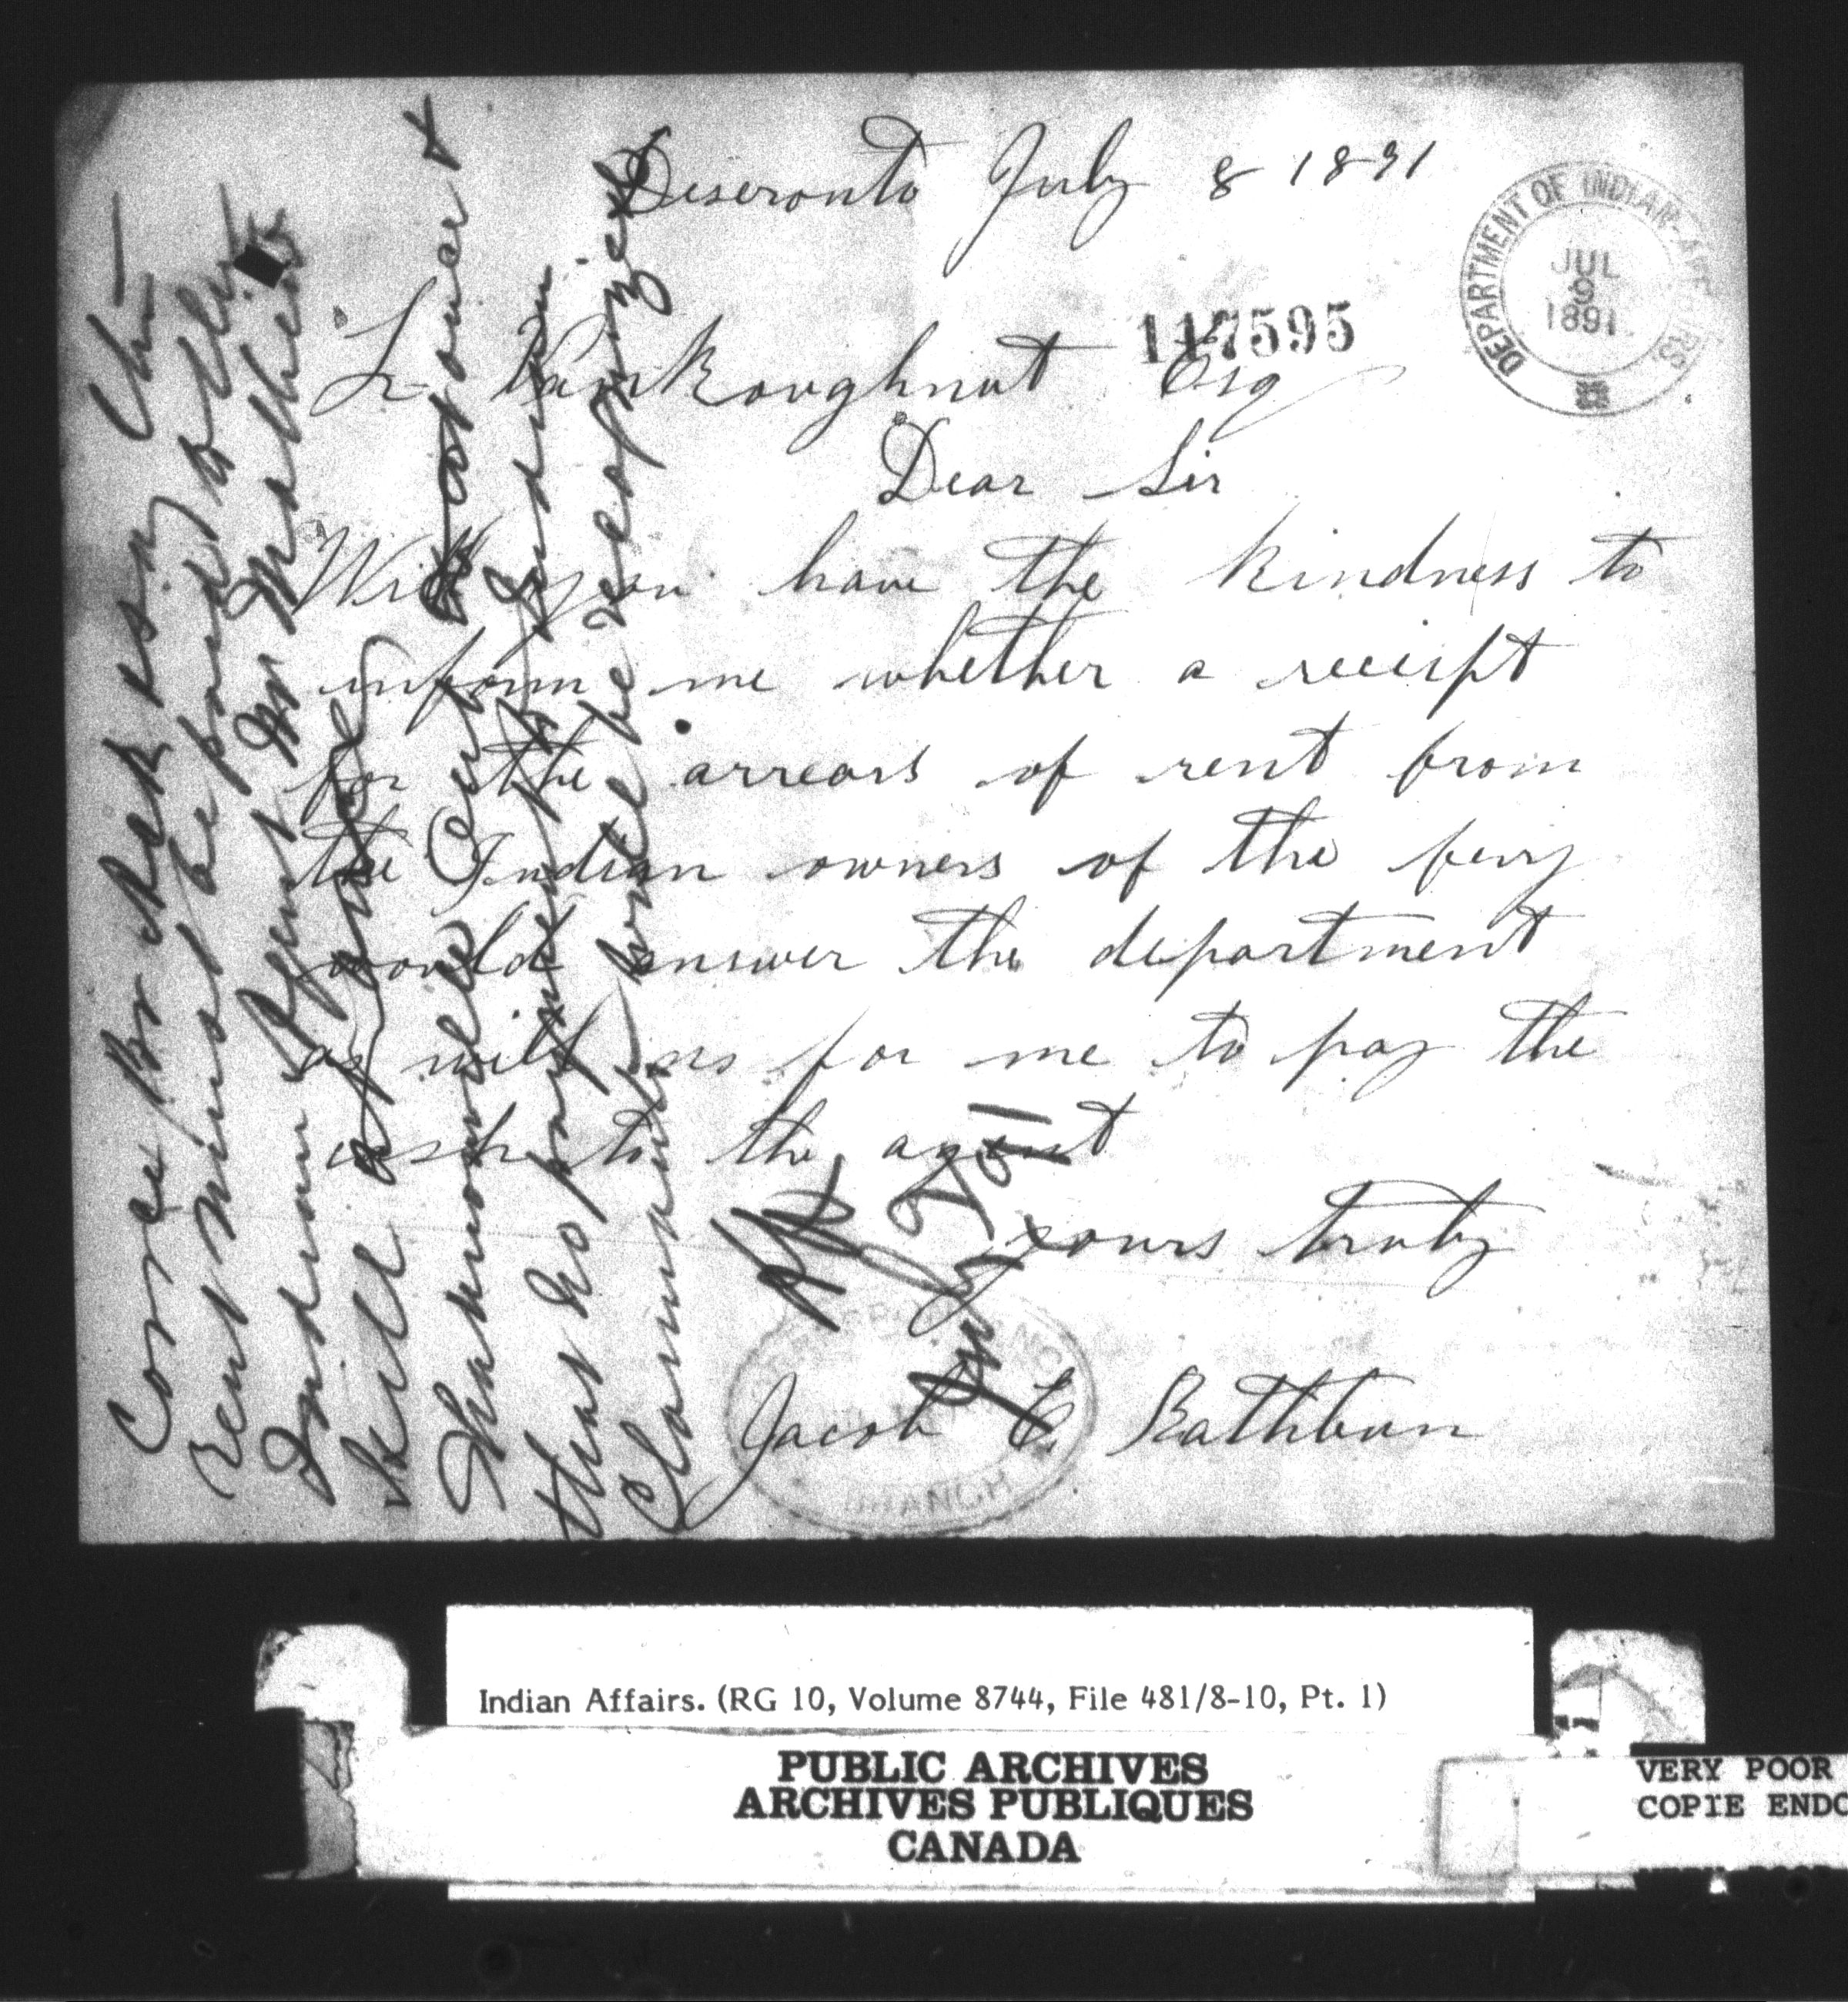 Deseronto July 8 1891
DEPARTMENT OF INDIAN AFFAIRS
JUL
9
1891
117595
L. VanKoughnut Esq
Dear Sir
Will you have the kindness to
inform me whether a receipt
for the arrears of rent from
the Indian owners of the fery
would answer the department
as well as for me to pay the
cash to the agent
yours truly
Jacob E. Rathbun
BRANCH
Corres Br
rent must be paid to the
Indian Agent Mr Matheso
still
at once &
that no
Claimants will be recognized
July 9/91
Indian Affairs. (RG 10, Volume 8744, File 481/8-10, Pt. 1)
PUBLIC ARCHIVES
ARCHIVES PUBLIQUES
CANADA
VERY POOR
COPIE ENDO